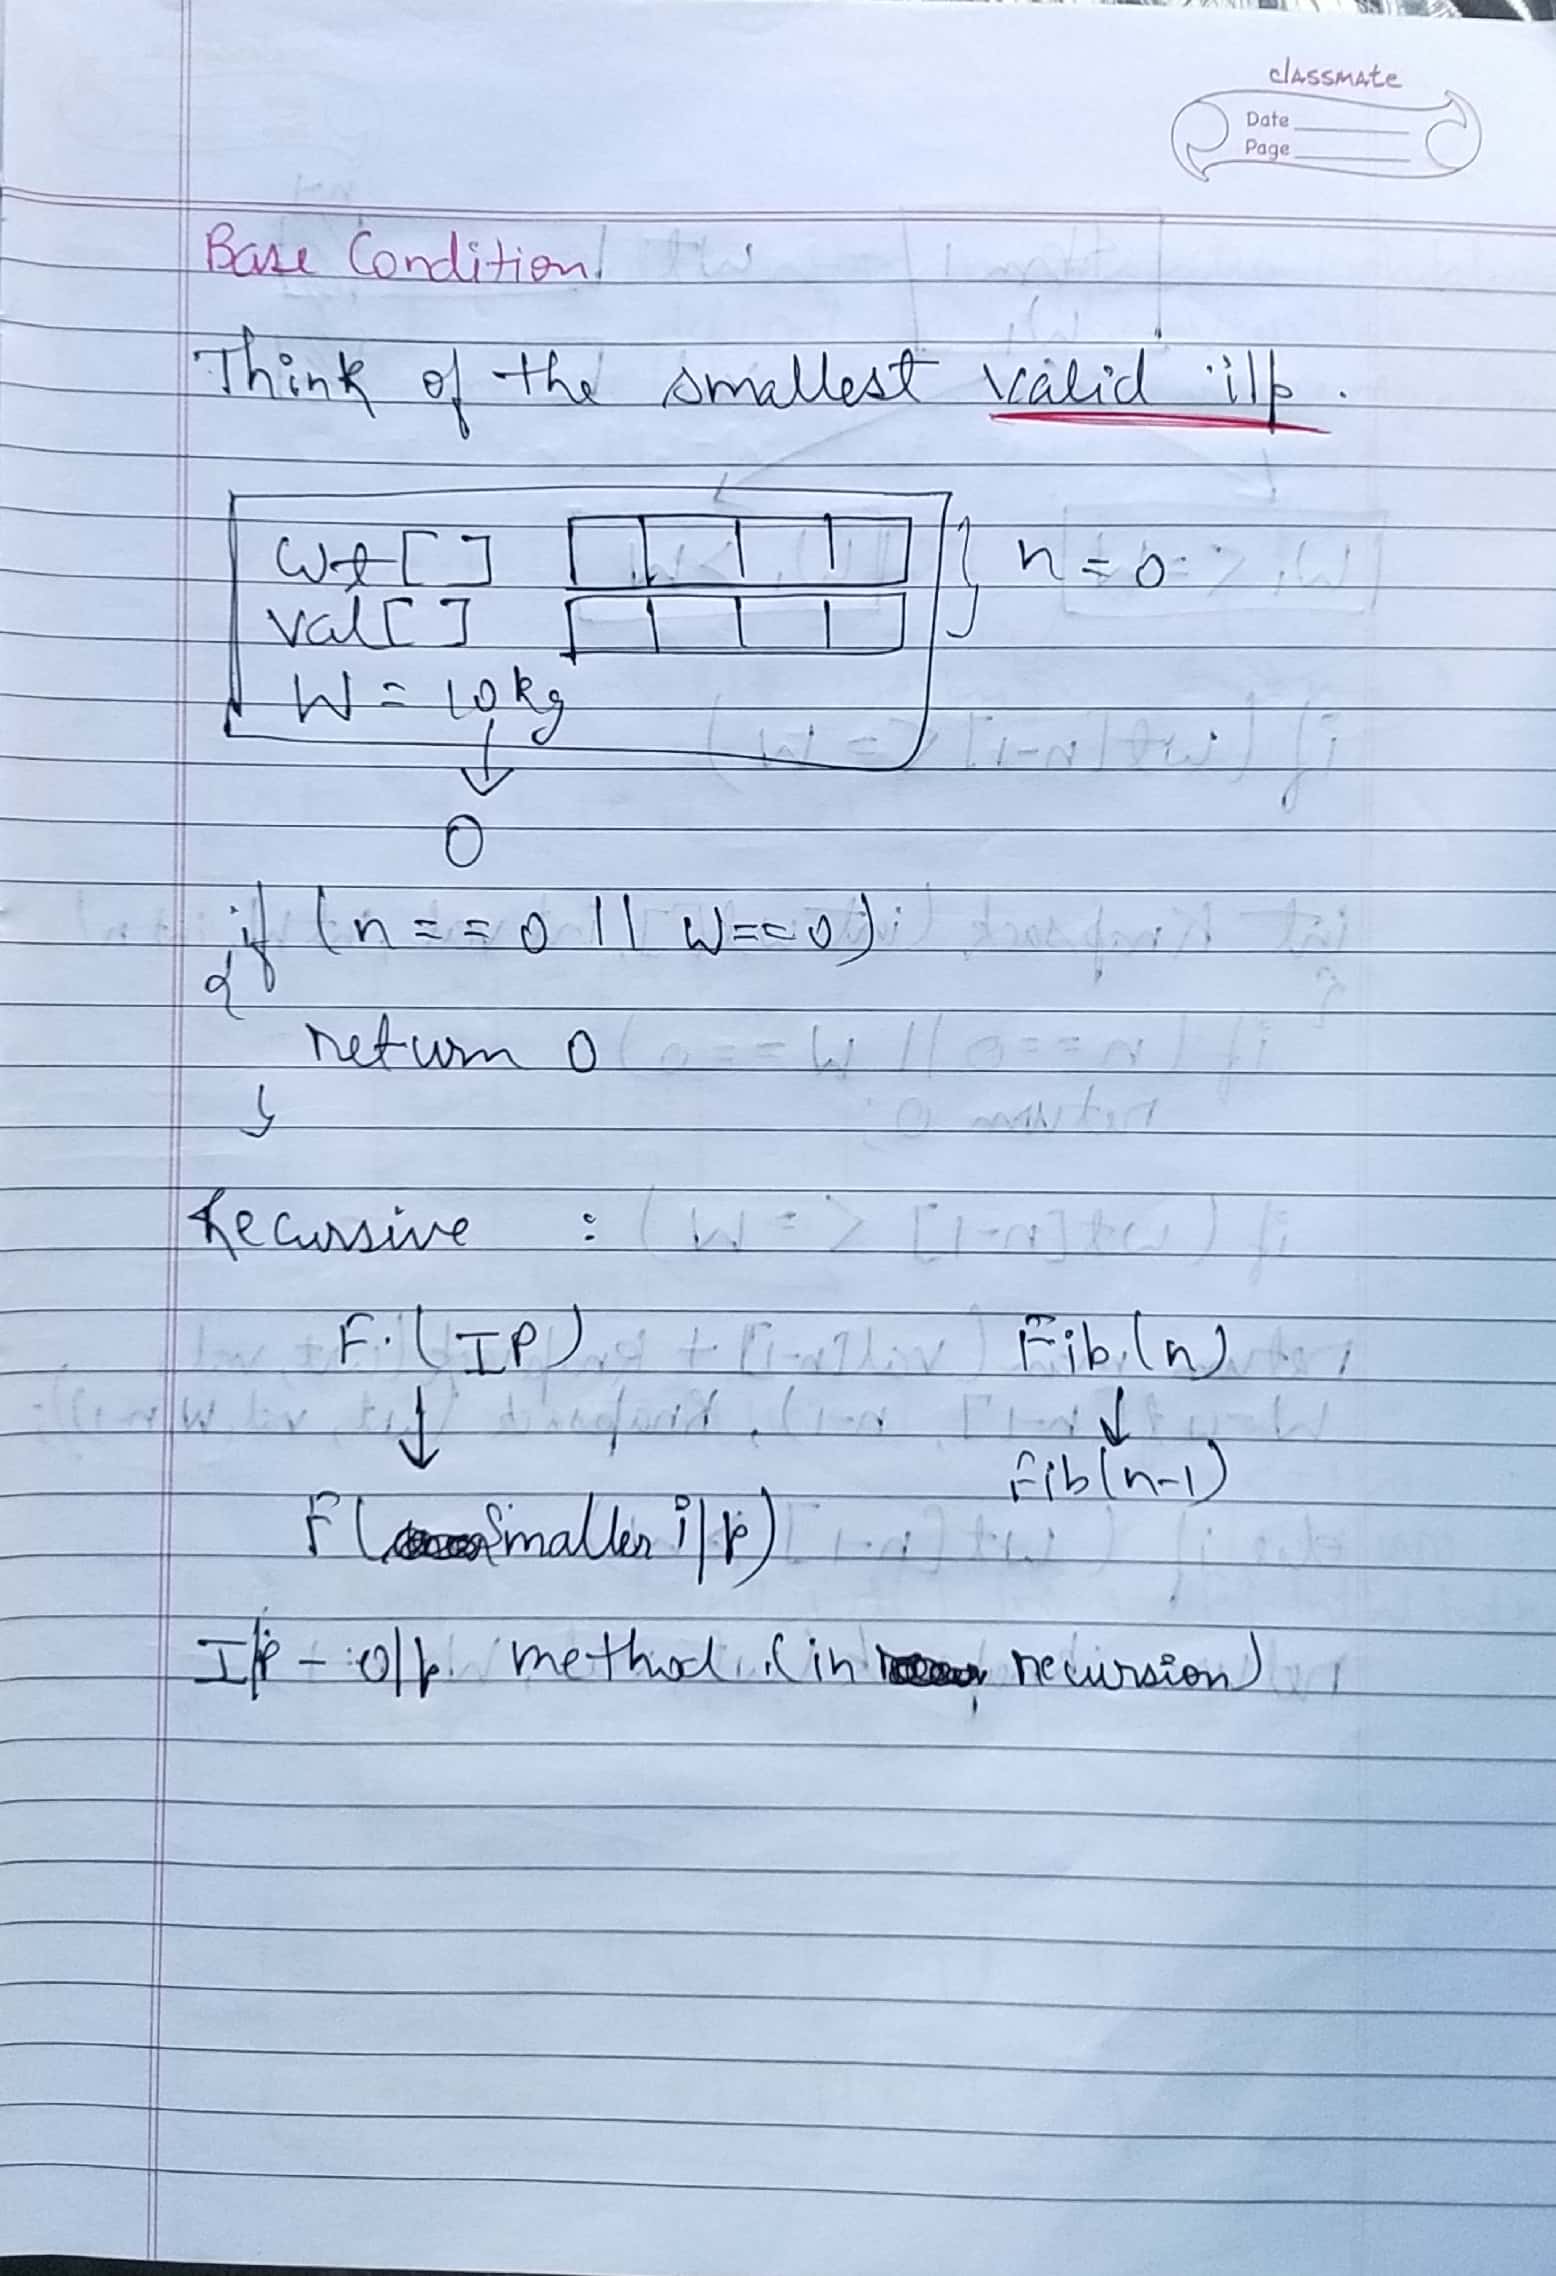 classmate
Date
Page
Base Condition
Think of the smallest valid i/p.
wt[]
n = 0
val[]
W = 10kg
0
if (n == 0 || W==0)
{
return 0
}
Recursive :
F.(IP) Fib.(n)
↓ ↓
Fib(n-1)
F(Smaller i/p)
I/p - o/p method (in recursion)